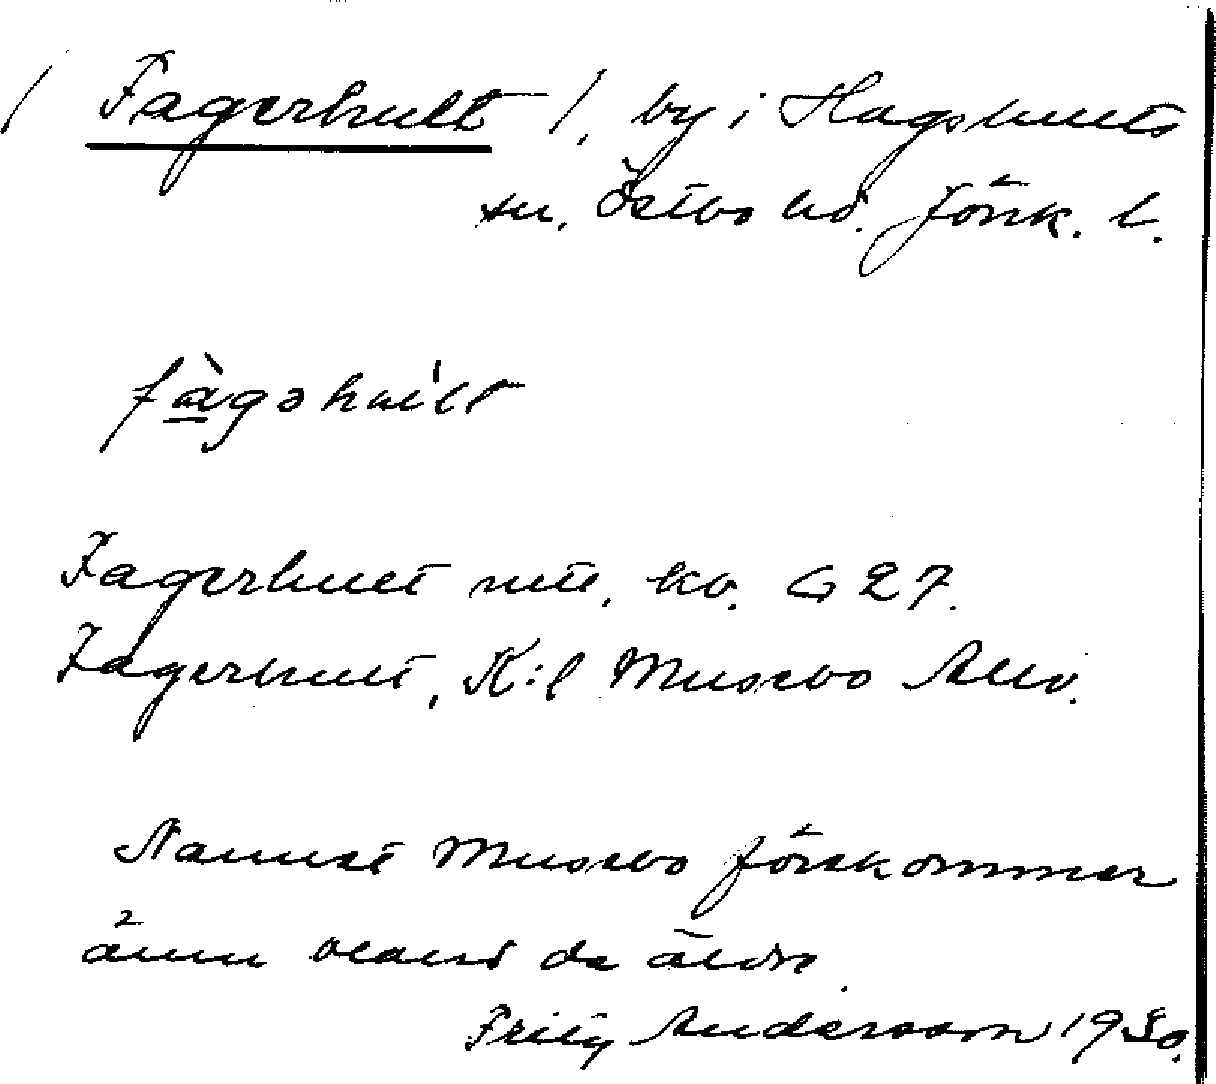 / Fagerhult /, by i Hagshults
sn, Östbo hd. Jönk. l.
fàgəhúlt
Fagerhult ntu, ko. G 27.
Fagerhult, K:l Mussbo Allm.
Namnet Mussebo förekommer
ännu bland de äldre.
Fritz Andersson 1930.